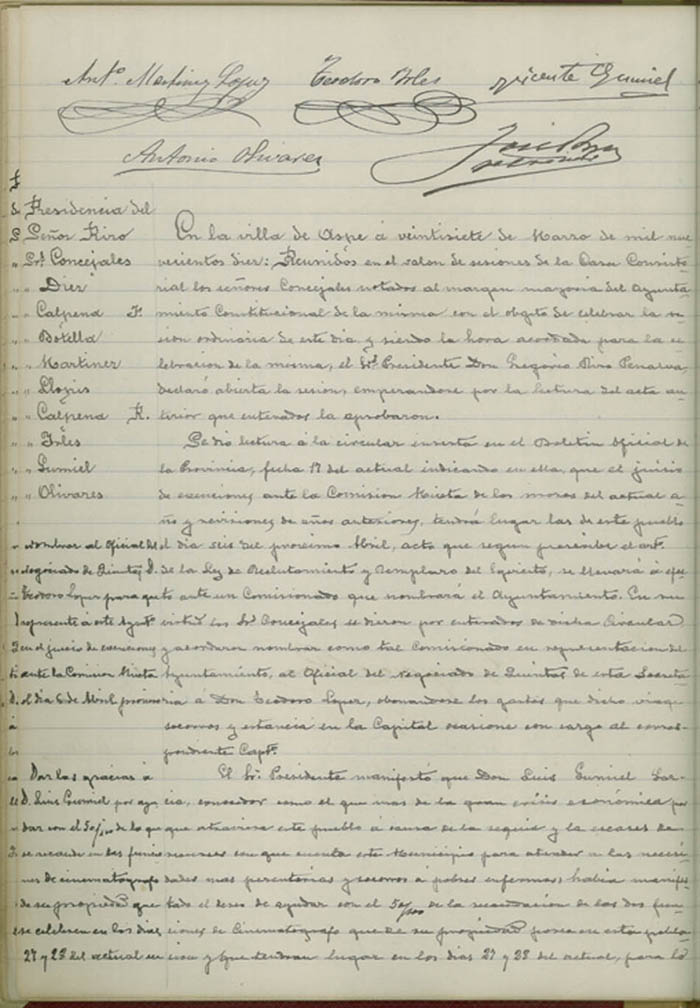 Antº Martinez Lopez Teodoro Irles Vicente Gumiel
Antonio Olivares José
Presidencia del
Señor Piro
Sres Concejales
" " Diez
" " Calpena F.
" " Botella
" " Martinez
" " Llopis
" " Calpena R.
" " Irles
" " Gumiel
" " Olivares
En la villa de Aspe á veintisiete de Marzo de mil nue
vecientos diez: Reunidos en el salon de sesiones de la Casa Consisto
rial los señores Concejales notados al margen mayoria del Ayunta
miento Constitucional de la misma con el objeto de celebrar la se
sion ordinaria de este dia y siendo la hora acordada para la ce
lebracion de la misma, el Sr. Presidente Don Gregorio Piro Penalva,
declaró abierta la sesion, empezandose por la lectura del acta an
terior que enterados la aprobaron.
Se dio lectura á la circular inserta en el Boletin Oficial de
la Provincia, fecha 17 del actual indicando en ella, que el juicio
de exenciones ante la Comision Mixta de los mozos del actual a
ño y revisiones de años anteriores, tendrá lugar las de este pueblo
el dia seis del procsimo Abril, acto que segun prescribe el artº
de la Ley de Reclutamiento y Remplazo del Egercito, se llevará á efec
to ante un Comisionado que nombrará el Ayuntamiento. En su
virtud los Sres Concejales se dieron por enterados de dicha Circular
y acordaron nombrar como tal Comisionado en representacion del
Ayuntamiento, al Oficial del negociado de Quintas de esta Secreta
ria á Don Teodoro Lopez, abonandose los gastos que dicho viage
socorros y estancia en la Capital ocasione con cargo al corres-
pondiente Captº.
nombrar al Oficial del
negociado de Quintas D.
Teodoro Lopez para que
represente á este Ayuntº
en el juicio de exenciones
ante la Comision Mixta
el dia 6 de Abril procsimo
El Sr. Presidente manifestó que Don Luis Gumiel Gar-
cia, conocedor como el que mas de la gran crisis económica por
que atraviesa este pueblo á causa de la sequia y la escasez de
recursos con que cuenta este Municipio para atender a las necesi
dades mas perentorias y socorros á pobres enfermos, habia manifes
tado el deseo de ayudar con el 50/100 de la recaudacion de las dos fun
ciones de Cinematografo que de su propiedad posee en esta pobla
cion y que tendran lugar en los dias 27 y 28 del actual, para lo
Dar las gracias á
D. Luis Gumiel por ayu
dar con el 50/100 de lo que
se recaude en las funcio
nes de cinematografo
de su propiedad que
se celebren en los dias
27 y 28 del actual en